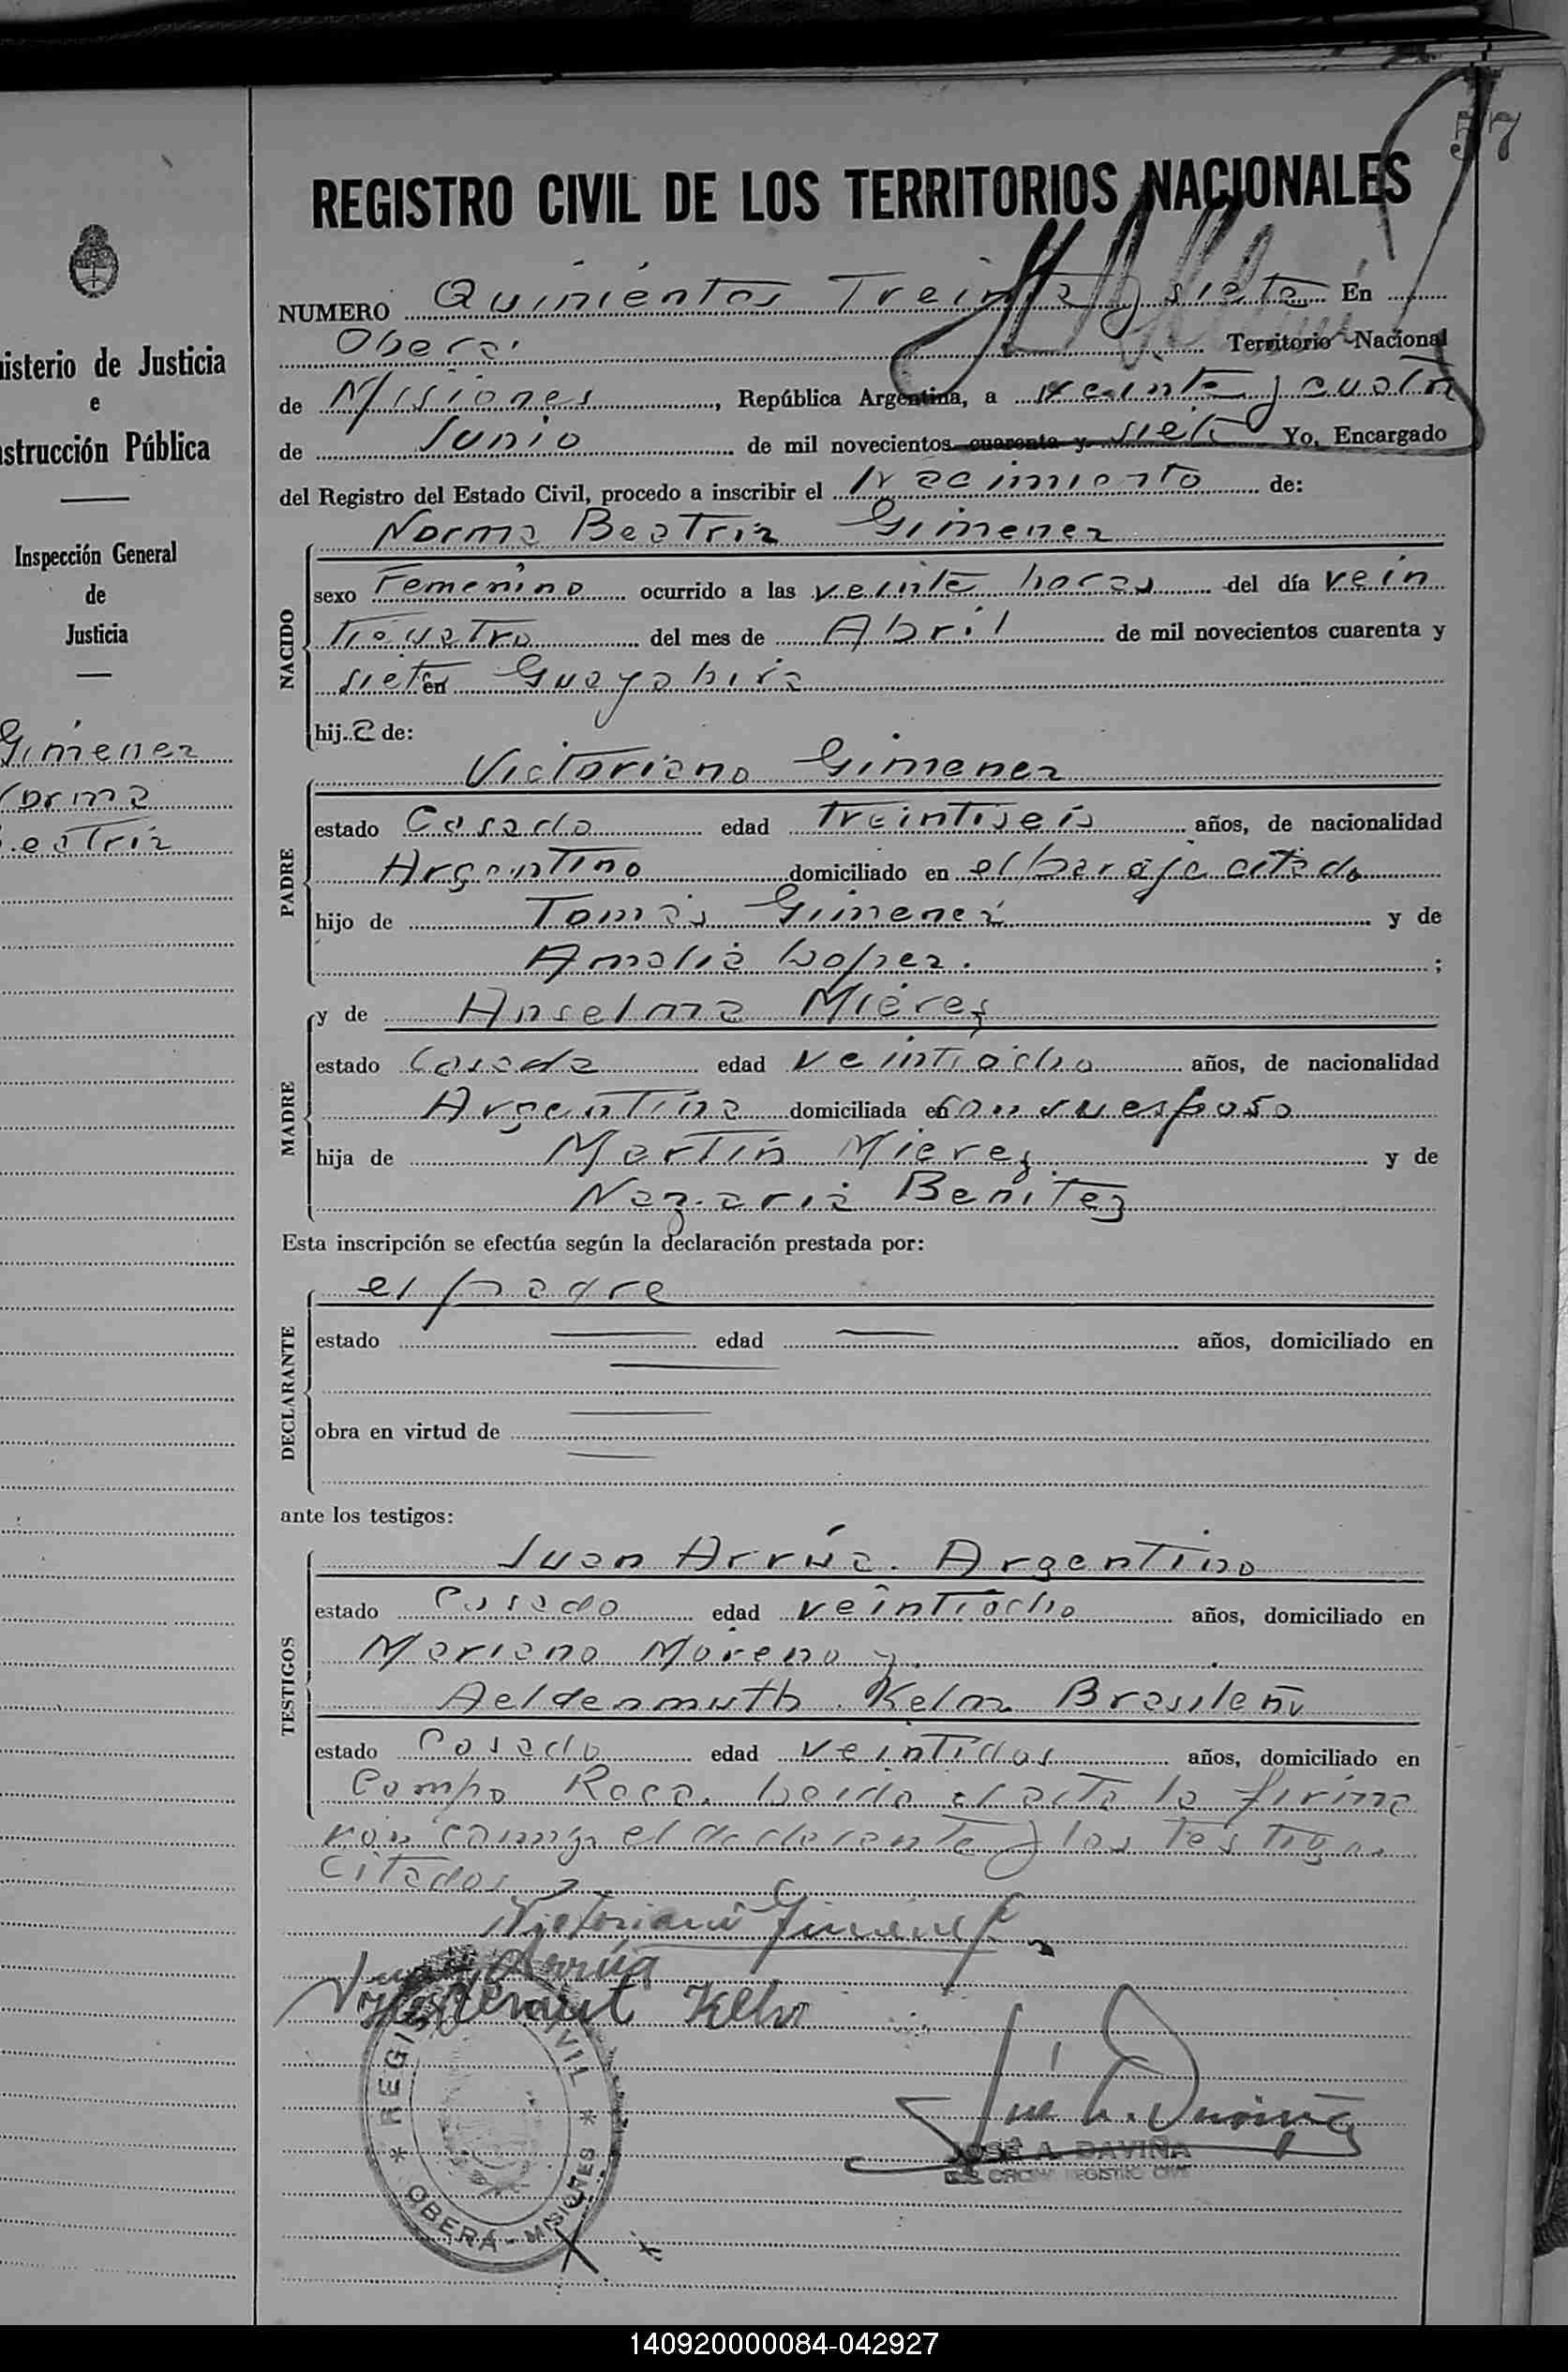 57
REGISTRO CIVIL DE LOS TERRITORIOS NACIONALES
NUMERO Quinientos Treinta y siete En
Oberá Territorio Nacional
de Misiones, República Argentina, a veinte y cuatro
de Junio de mil novecientos cuarenta y siete Yo, Encargado
del Registro del Estado Civil, procedo a inscribir el Nacimiento de:
Norma Beatriz Gimenez
NACIDO
sexo Femenino ocurrido a las veinte horas del día vein
ticuatro del mes de Abril de mil novecientos cuarenta y
siete en Guayabira
hij a de:
Victoriano Gimenez
PADRE
estado Casado edad treintiseis años, de nacionalidad
Argentino domiciliado en el paraje citado
hijo de Tomás Gimenez y de
Amalia Lopez. ;
MADRE
y de Anselma Mierez
estado Casada edad veintiocho años, de nacionalidad
Argentina domiciliada en con su esposo
hija de Martín Mierez y de
Nazaria Benitez
Esta inscripción se efectúa según la declaración prestada por:
el padre
DECLARANTE
estado edad años, domiciliado en
obra en virtud de
ante los testigos:
Juan Arrúa. Argentino
TESTIGOS
estado Casado edad veintiocho años, domiciliado en
Mariano Moreno y
Aeldenmuth Kelm Brasileño
estado Casado edad veintidos años, domiciliado en
Campo Roca. Leida el acta la firma
ron conmigo el declarante y los testigos
citados
Victoriano Gimenez
Juan Arrúa
José A. Daviña
JOSÉ A. DAVIÑA
REGISTRO CIVIL
* REGI IVIL *
OBERÁ - MISIONES
isterio de Justicia
e
strucción Pública
Inspección General
de
Justicia
Gimenez
orma
eatriz
140920000084-042927